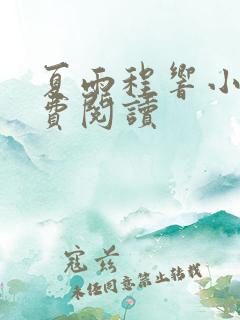 夏雨程響小
費閱讀
寇茲
未任同意禁止轉載